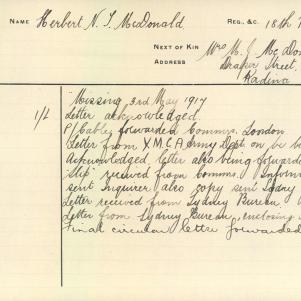 NAME Herbert N. L. McDonald REG., &C. 18th
NEXT OF KIN Mrs M. J. McDo
ADDRESS Draper Street,
Kadina
Missing 3rd May 1917
1/L Letter acknowledged.
P/Cable forwarded Comms. London
Letter from Y.M.C.A. Army Dept. on be
Acknowledged, letter also being forwarde
Slip received from Comms. Inform
sent Inquirer also copy sent Sydney
Letter received from Sydney Bureau
Letter from Sydney Bureau, enclosing
Final circular letter forwarded